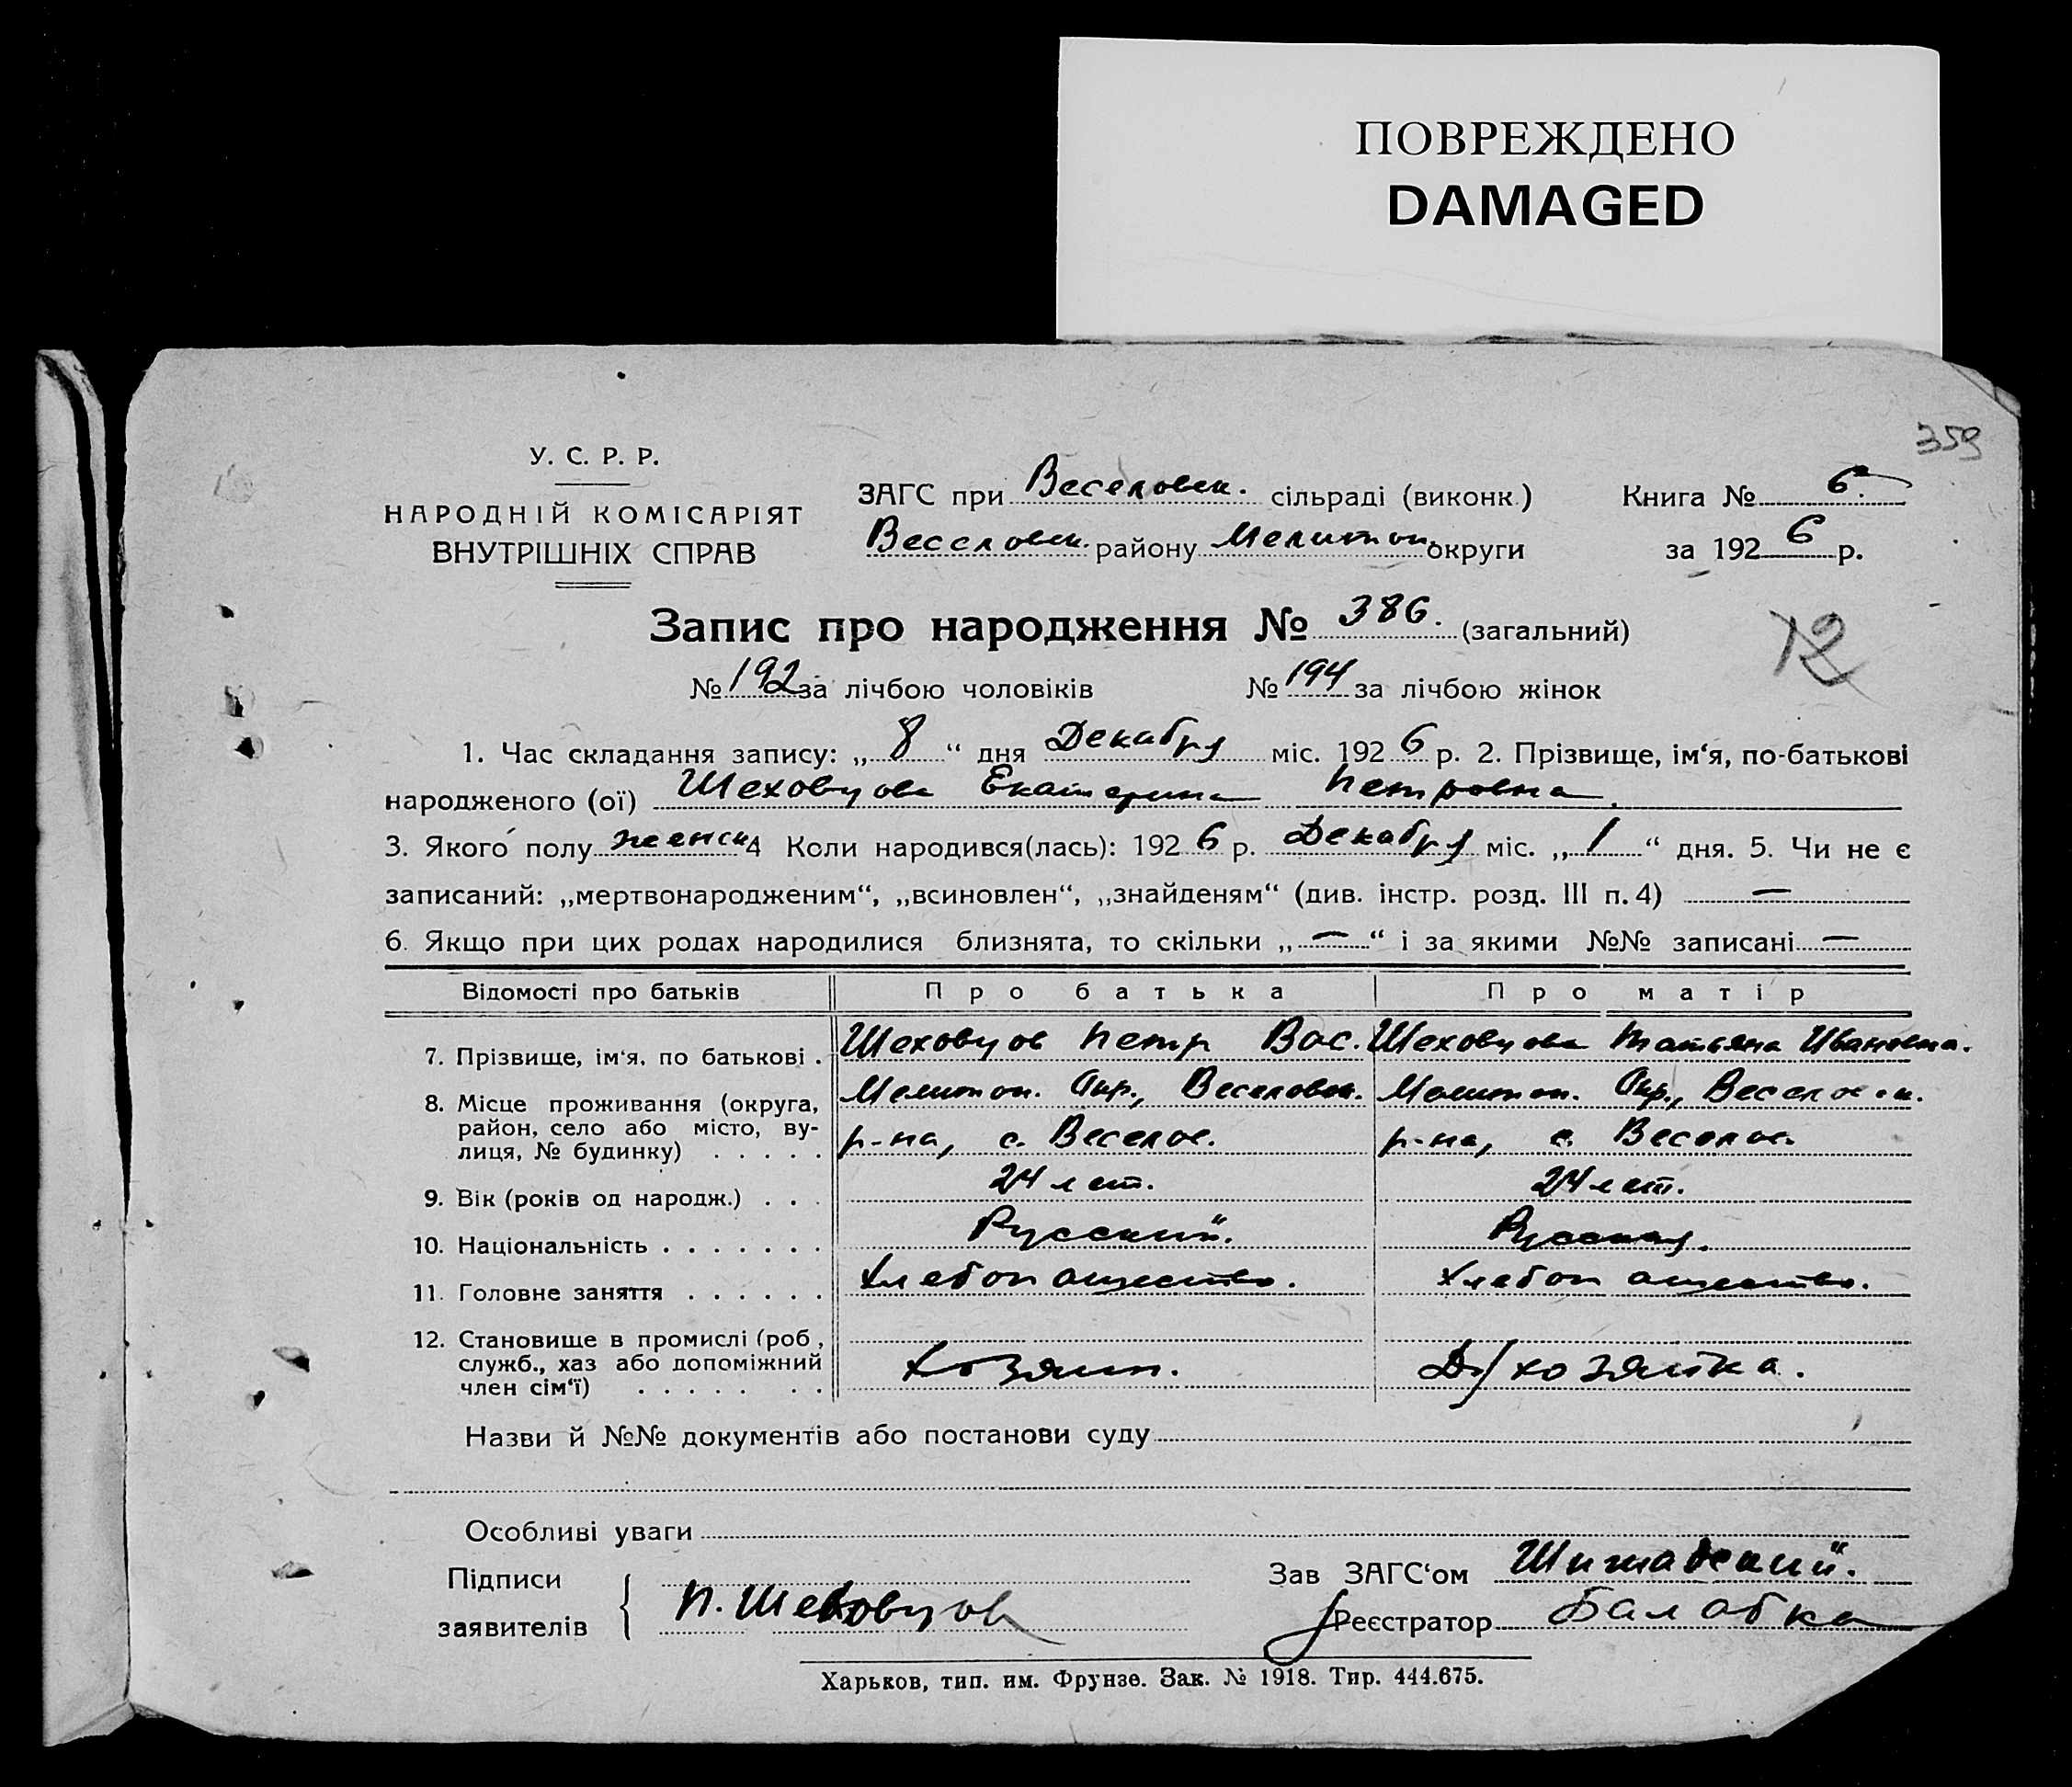 ПОВРЕЖДЕНО
DAMAGED
359
У. С. Р. Р.
НАРОДНІЙ КОМІСАРІЯТ
ВНУТРІШНІХ СПРАВ
ЗАГС при Веселовск. сільраді (виконк.)
Веселовск. району Мелитоп. округи
Книга № 6.
за 1926 р.
Запис про народження № 386. (загальний)
12
№ 192 за лічбою чоловіків № 194 за лічбою жінок
1. Час складання запису: „8“ дня Декабря міс. 1926 р. 2. Прізвище, ім‘я, по-батькові
народженого (ої) Шеховцова Екатерина Петровна.
3. Якого полу женск 4 Коли народився(лась): 1926 р. Декабря міс. „1“ дня. 5. Чи не є
записаний: „мертвонародженим“, „всиновлен“, „знайденям“ (див. інстр. розд. III п. 4) —
6. Якщо при цих родах народилися близнята, то скільки „—“ і за якими №№ записані —
Відомості про батьків Про батька Про матір
7. Прізвище, ім‘я, по батькові . Шеховцов Петр Вас. Шеховцова Татьяна Ивановна.
8. Місце проживання (округа, Мелитоп. Окр., Веселовск. Мелитоп. Окр., Веселовск.
район, село або місто, ву-
лиця, № будинку) . . . . . р-на, с. Веселое. р-на, с. Веселое.
9. Вік (років од народж.) . . . 24 лет. 24 лет.
10. Національність . . . . . . . Русский. Русская.
11. Головне заняття . . . . . . Хлебопашество. Хлебопашество.
12. Становище в промислі (роб.,
служб., хаз або допоміжний Хозяин. Д/хозяйка.
член сім‘ї) . . . . . . .
Назви й №№ документів або постанови суду
Особливі уваги
Підписи
заявителів П. Шеховцов
Зав ЗАГС‘ом
Реєстратор Балабка
Харьков, тип. им. Фрунзе. Зак. № 1918. Тир. 444.675.